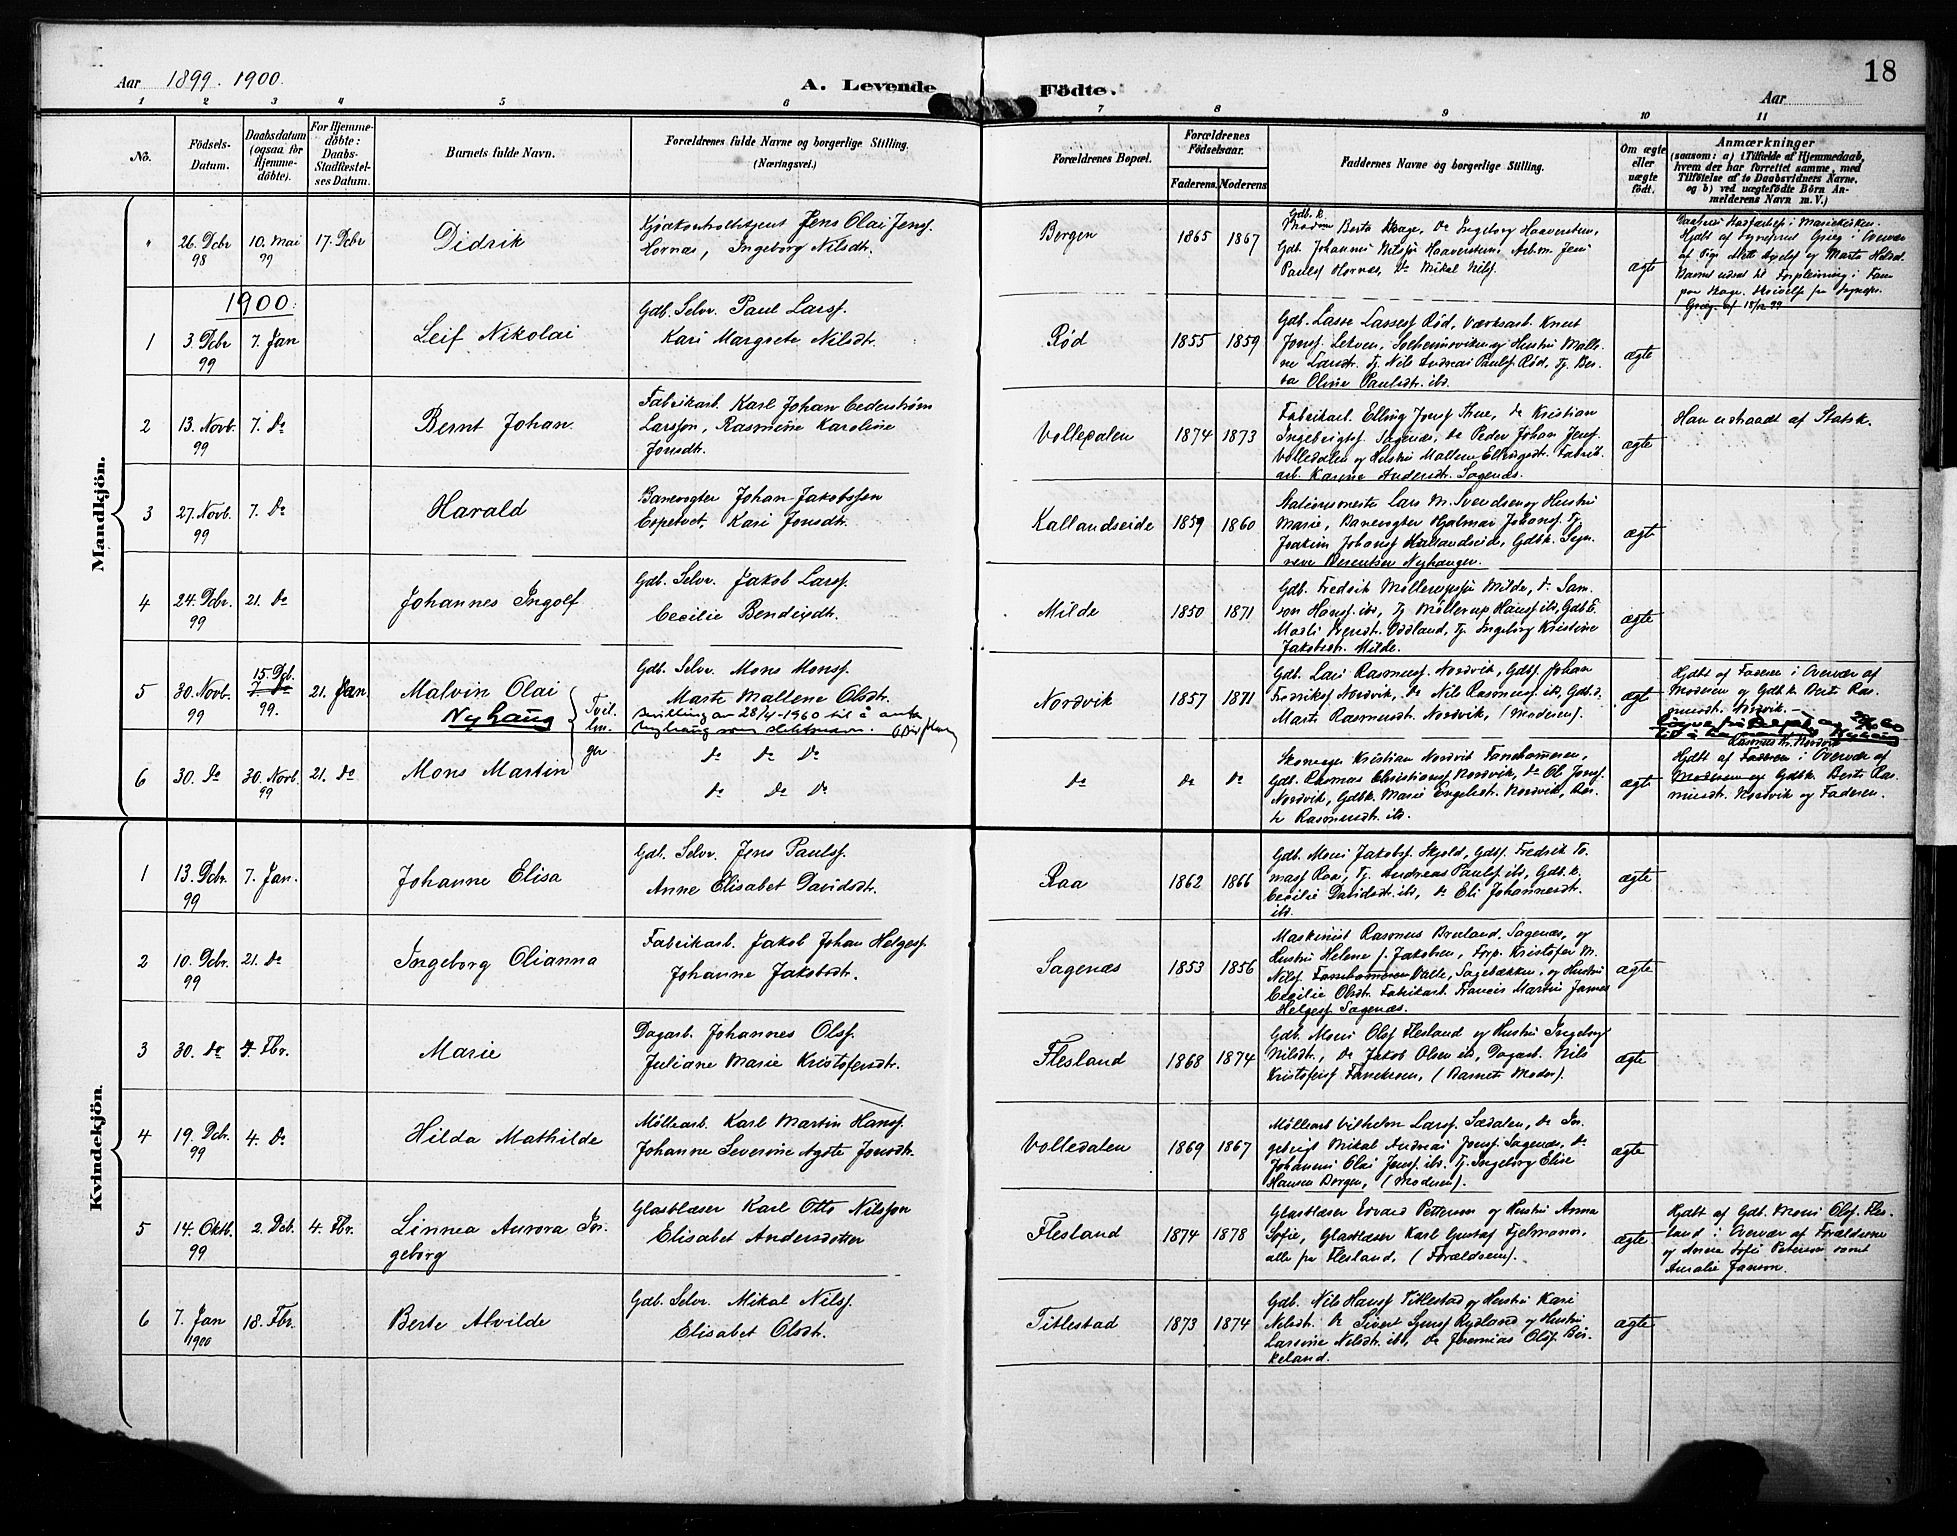 18
Aar 1899. 1900.
A. Levende Födte.
Aar
1 2 3 4 5 6 7 8 9 10 11
No.
Födsels-
Datum.
Daabsdatum
(ogsaa for
Hjemme-
döbte).
For Hjemme-
döbte:
Daabs-
Stadfæstel-
ses Datum.
Barnets fulde Navn.
Forældrenes fulde Navne og borgerlige Stilling.
(Næringsvei.)
Forældrenes Bopæl.
Forældrenes
Födselsaar.
Faderens. Moderens.
Faddernes Navne og borgerlige Stilling.
Om ægte
eller
uægte
födt.
Anmærkninger
(saasom: a) i Tilfælde af Hjemmedaab,
hvem der har forrettet samme, med
Tilföielse af to Daabsvidners Navne,
og b) ved uægtefödte Börn An-
melderens Navn m. V.)
Mandkjön.
" 26. Dcbr 98 10. Mai 99 17. Dcbr Didrik
Jens Olai Jensf.
Hornæs, Ingeborg Nilsdt.
Bergen 1865 1867
Berta Hage, Do Ingeborg Haavenstein,
Gdb. Johannes Haavenstein, Arbm. Jens
Paulsf Hornæs, Do Mikal Nilsf.
ægte
1900.
1 3. Dcbr 99 7. Jan Leif Nikolai
Gdb. Selvr. Paul Larsf.
Kari Margrete Nilsdt.
Rød 1855 1859
Gdb. Lasse Lassesf Rød, Værksarb. Knut
Jonsf. Lekven, Solheimsviken og Hustru Malle-
ne Larsdt. Tj. Nils Andreas Paulsf Rød, Tj. Ber-
ta Oline Paulsdt. ibd.
ægte
2 13. Novb. 99 7. Do Bernt Johan
Fabrikarb. Karl Johan Cederstrøm
Larsson, Rasmine Karoline
Jonsdt.
Volledalen 1874 1873
Fabrikarb. Elling Jonsf Thue, Do Kristian
Ingebrigtsf Sagenæs, Do Peder Johan Jensf.
Volledalen og Hustru Mallene Ellingsdt. Fabrik-
arb. Karine Andersdt. Sagenæs.
ægte
Han udtraadt af Statsk.
3 27. Novb. 99 7. Do Harald
Banevogter Johan Jakobsson
Espetvet, Kari Jonsdt.
Kallandseide 1859 1860
Stationsmester Lars M. Svendsen og Hustru
Marie, Banevogter Hjalmar Johansf. Tj.
Joakim Johansf Kallandseid, Gdbk. Syn-
neve Berentsen Nyhaugen.
ægte
4 24. Dcbr. 99 21. Do Johannes Ingolf
Gdb. Selvr. Jakob Larsf.
Cecilie Bendixdt.
Milde 1850 1871
Gdb. Fredrik Møllerupsf Milde, Do Sam-
son Hansf. ibd, Tj. Møllerup Hansf ibd, Gdbk.
Marti Oddland, Tj. Ingeborg Kristine
Jakobsdt. Milde.
ægte
5 30. Novb. 99 7. Do 15. Dcb. 99. 21. Jan Malvin Olai
Nyhaug
Tvil-
lin-
ger
Gdb. Selvr. Mons Monsf.
Marte Mallene Olsdt.
Nordvik 1857 1871
Gdb. Lars Rasmusf. Nordvik, Gdbsf. Johan
Fredriksf Nordvik, Do Nils Rasmusf. ibd, Gdbd.
Marte Rasmusdt. Nordvik, (Moderen).
ægte
Hjdbt af Faderen i Overvær af
Moderen og Gdbk. Berte Ras-
musdt. Nordvik.
6 30. Do 30. Novb. 99 21. Do Mons Martin
Do Do Do
Do Do Do
Do Do Do
Kristian Nordvik Fanehammeren,
Gdb. Rasmus Christiansf Nordvik, Do Ol Jonsf.
Nordvik, Gdbk. Marie Engelsdt. Nordvik, Ber-
te Rasmusdt. ibd.
ægte
Hjdbt af Faderen i Overvær af
Moderen og Gdbk. Berte Ras-
musdt. Nordvik og Faderen.
Kvindekjön
1 13. Dcbr. 99 7. Jan. Johanne Elisa
Gdb. Selvr. Jens Paulsf.
Anne Elisabet Davidsdt.
Raa 1862 1866
Gdb. Mons Jakobsf. Skjold, Gdbsf. Fredrik To-
masf Raa, Tj. Andreas Paulsf ibd, Gdbk.
Cecilie Davidsdt. ibd, Do Eli Johannesdt.
ibd.
ægte
2 10. Dcbr. 99 21. Do Ingeborg Olianna
Fabrikarb. Jakob Johan Helgesf.
Johanne Jakobsdt.
Sagenæs 1853 1856
Maskinist Rasmus Bruland, Sagenæs, og
Hustru Helene f. Jakobsen, Forp. Kristofer M.
Nilsf. Fanehammeren Valle, Sagebækken, og Hustru
Cecilie Olsdt. Fabrikarb. Francis Martin James
Helgesf Sagenæs.
ægte
3 30. Do 4. Fbr. Marie
Dagarb. Johannes Olsf.
Juliane Marie Kristofersdt.
Flesland 1868 1874
Gdb. Mons Olsf Flesland og Hustru Ingeborg
Nilsdt., Do Jakob Olsen ibd, Dagarb. Nils
Kristofersf Fanekroen, (Barnets Moder).
ægte
4 19. Dcbr. 99 4. Do Hilda Mathilde
Møllearb. Karl Martin Hansf.
Johanne Severine Agate Jonsdt.
Volledalen 1869 1867
Møllearb Vilhelm Larsf. Sædalen, Do In-
gebrigt Mikal Andreas Jonsf. Sagenæs, Do
Johannes Olai Jensf. ibd. Tj. Ingeborg Elise
Hansen Bergen, (Moderen).
ægte
5 14. Oktb. 99 2. Dcb. 4. Fbr. Linnea Aurora In-
geborg
Glasblæser Karl Otto Nilsson
Elisabet Andersdotter
Flesland 1874 1878
Glasblæser Edvard Petterson og Hustru Anna
Sofie, Glasblæser Karl Gustaf Fjelmanor,
alle fra Flesland, (Forældrene).
ægte
Hjdbt af Gdb. Mons Olsf. Fles-
land i Overvær af Forældrene
og Anna Sofi Peterson samt
Amalie Janson.
6 7. Jan 1900 18. Fbr. Berte Alvilde
Gdb. Selvr. Mikal Nilsf.
Elisabet Olsdt.
Titlestad 1873 1874
Gdb. Nils Hansf Titlestad og Hustru Kari
Nilsdt. Do Sivert Rydland og Hustru
Larsine Nilsdt. ibd, Do Jeremias Olsf. Bir-
keland.
ægte